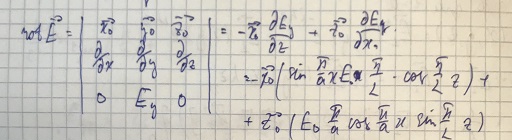 rot E⃗ = | x⃗₀ y⃗₀ z⃗₀ | = - x⃗₀ ∂Ey/∂z + z⃗₀ ∂Ey/∂x =
| ∂/∂x ∂/∂y ∂/∂z |
| 0 Ey 0 |
= - x⃗₀ ( sin π/a x E₀ π/L · cos π/L z ) +
+ z⃗₀ ( E₀ π/a cos π/a x sin π/L z )